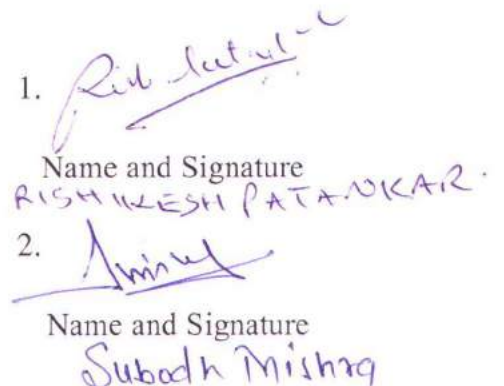 1.
Name and Signature
RISHIKESH PATANKAR.
2.
Name and Signature
Subodh Mishra